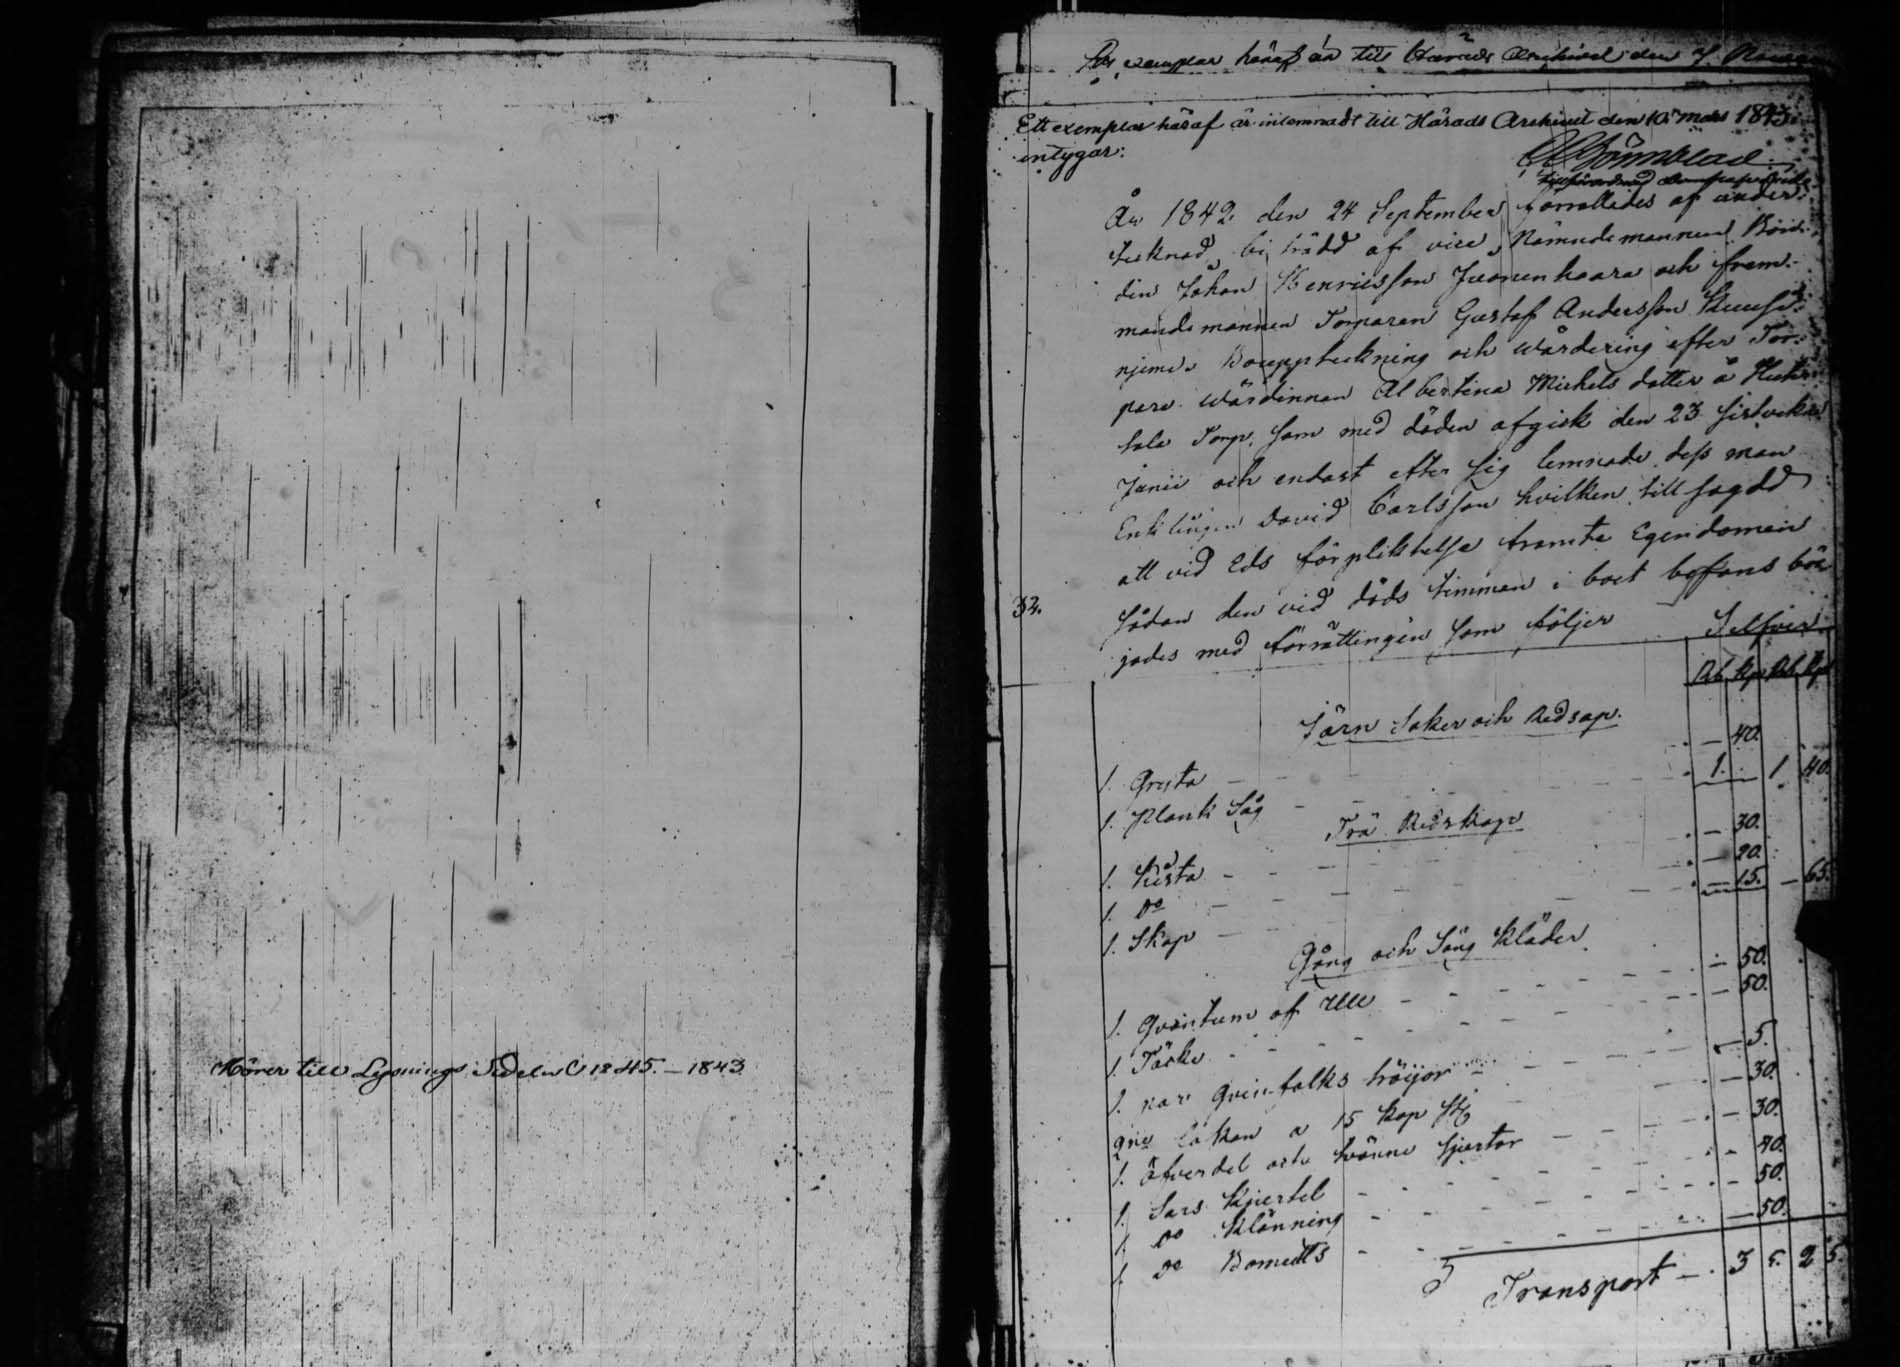 Hörer till Lysnings Sedeln C 1845. — 1843
exemplar häraf är till Härads Archivet den 7
Ett exemplar häraf är inlemnadt till Härads Archivet den 10 Mars 1843.
intygar:
År 1842 den 24 September förrättades af under-
tecknad, biträdd af vice Nämndemannen Bon-
den Johan Henricsson Juonenhaara och frem-
mande mannen Torparen Gustaf Andersson
niemi, Bouppteckning och Wärdering efter Tor-
pare Wärdinnan Albertina Michels dotter å
tala Torp, som med döden afgick den 23 sistvekne
Junii och endast efter sig lemnade dess man
Enklingen David Carlsson hvilken tillsagdd
att vid Eds förpliktelse framte Egendomen
32.
sådan den vid döds timman i boet befans bör-
jades med förrättingen som följer
Silfver
Rb. Kp. Rb. Kp.
Järn Saker och Redsap.
1. Gryta — 40.
1. Plank Såg 1. — 1 40.
Trä Redskap
1. Kista — 30.
1. Do — 20.
1. Skap — 15. — 65.
Gång och Säng Kläder
1. af Ull — 50.
1. Täcke — 50.
1. par Qvinfolks tröijor — 5.
lakan a 15 kop — 30.
1. öfverdel och tvänne — 30.
1. Sars Kjortel — 40.
1. Do Klänning — 50.
1. Do — 50.
Transport — 3 5. 2 5.